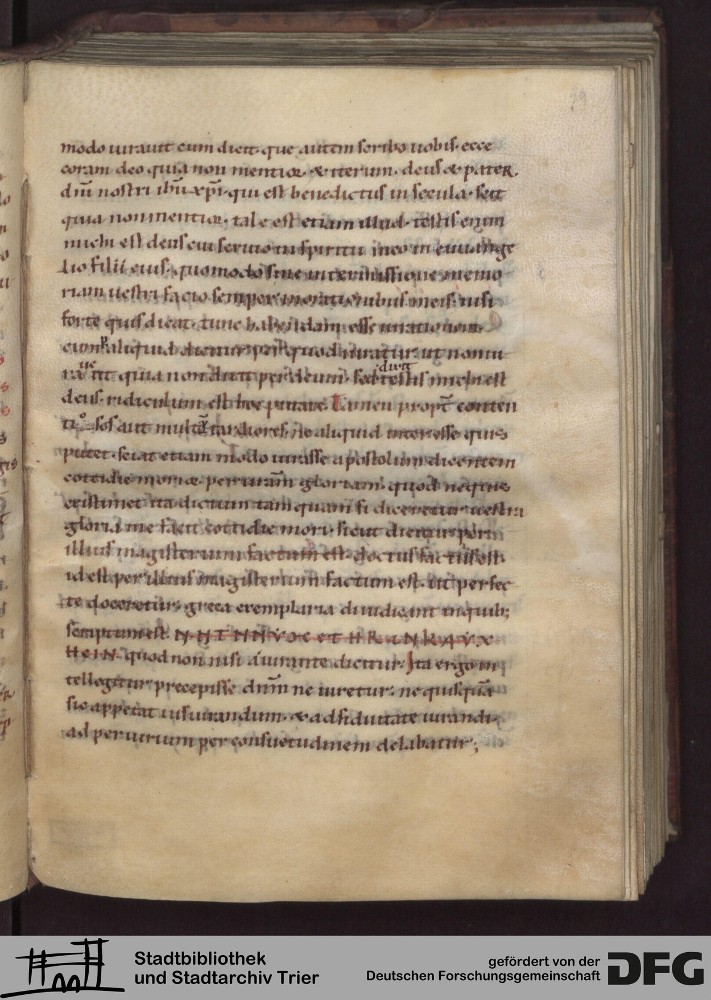 79
modo iurauit cum dicit· que autem scribo uobis· ecce
coram deo quia non mentior· & iterum· deus & pater·
dn̄i nostri ihū xp̄i· qui est benedictus in secula· scit
quia non mentior· tale est etiam illud· testis enim
michi est deus cui seruio in spiritu meo in euuange
lio filii eius· quomodo sine intermissione memo
riam uestri facio semper in orationibus meis· nisi
forte quis dicat· tunc habendam esse iurationem
cum aliquid dicitur per quod iuratur· ut non iu
quia non dixit per deum· sed dixit testis michi est
deus· ridiculum est hoc putare· Tamen propt̄ conten
aut multū tardiores· ne aliquid interesse quis
putet· sciat etiam modo iurasse apostolum dicentem
cottidie morior per uram̄ gloriam· quod ne quis
existimet ita dictum tamquam si diceretur uestra
gloria me facit cottidie mori· sicut dicitur per
illius magisterium doctus factus est·
id est per illius magisterium factum est· ut perfec
te doceretur· greca exemplaria diiudicant in quib;
scriptum est·
quod non nisi a iurante dicitur· Ita ergo in
tellegitur precepisse dn̄m ne iuretur· ne quisquā
sic appetat iusiurandum· & adsiduitate iurandi
ad periurium per consuetudinem delabatur;
Stadtbibliothek
und Stadtarchiv Trier
gefördert von der
Deutschen Forschungsgemeinschaft
DFG